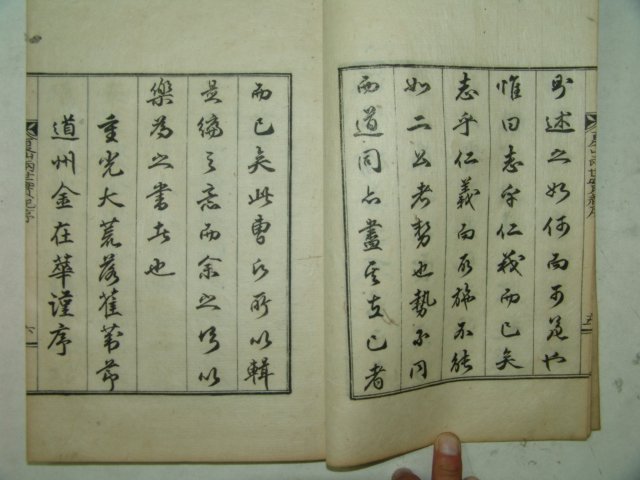 述之如何而可也
惟曰志乎仁義而已矣
志乎仁義而所施不能
如二公者勢也勢不同
而道同亦盡其在己者
而已矣此曹氏所以輯
是編之意而余之所以
樂為之書者也
重光大荒落萑葦節
道州金在華謹序
山兩世實紀序
六